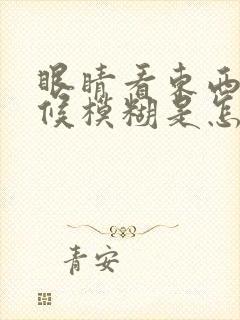 眼睛看东西
候模糊是怎
青安